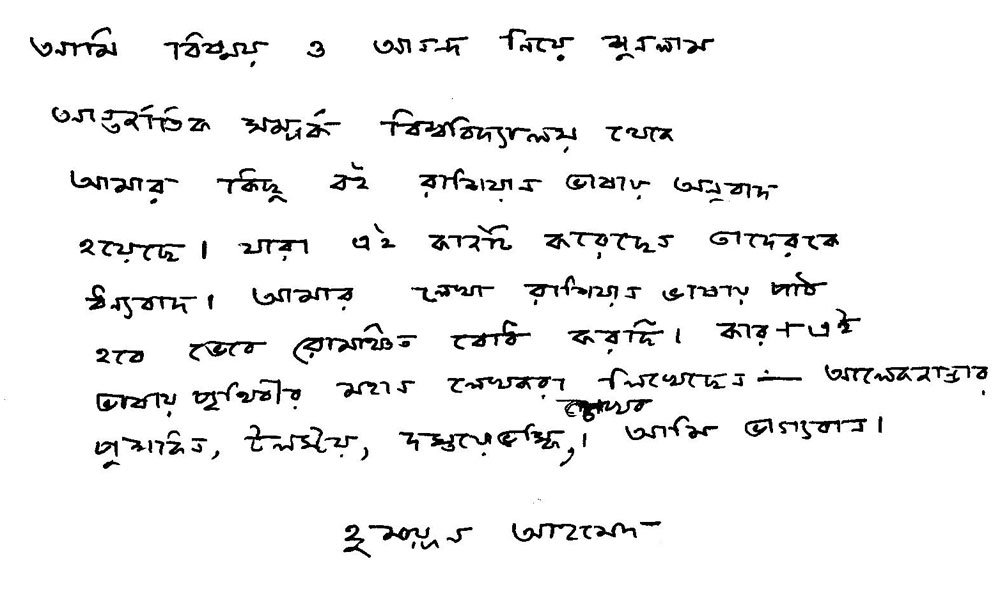 আমি বিস্ময় ও আনন্দ নিয়ে শুনলাম
আন্তর্জাতিক সম্পর্ক বিশ্ববিদ্যালয় থেকে
আমার কিছু বই রাশিয়ান ভাষায় অনুবাদ
হয়েছে। যারা এই কাজটি করেছেন তাদেরকে
ধন্যবাদ। আমার লেখা রাশিয়ান ভাষায় পাঠ
হবে ভেবে রোমাঞ্চিত বোধ করছি। কারণ এই
ভাষায় পৃথিবীর মহান লেখকরা লিখেছেন — আলেকজান্ডার
পুশকিন, টলস্টয়, দস্তয়েভস্কি,। আমি ভাগ্যবান।
হুমায়ূন আহমেদ